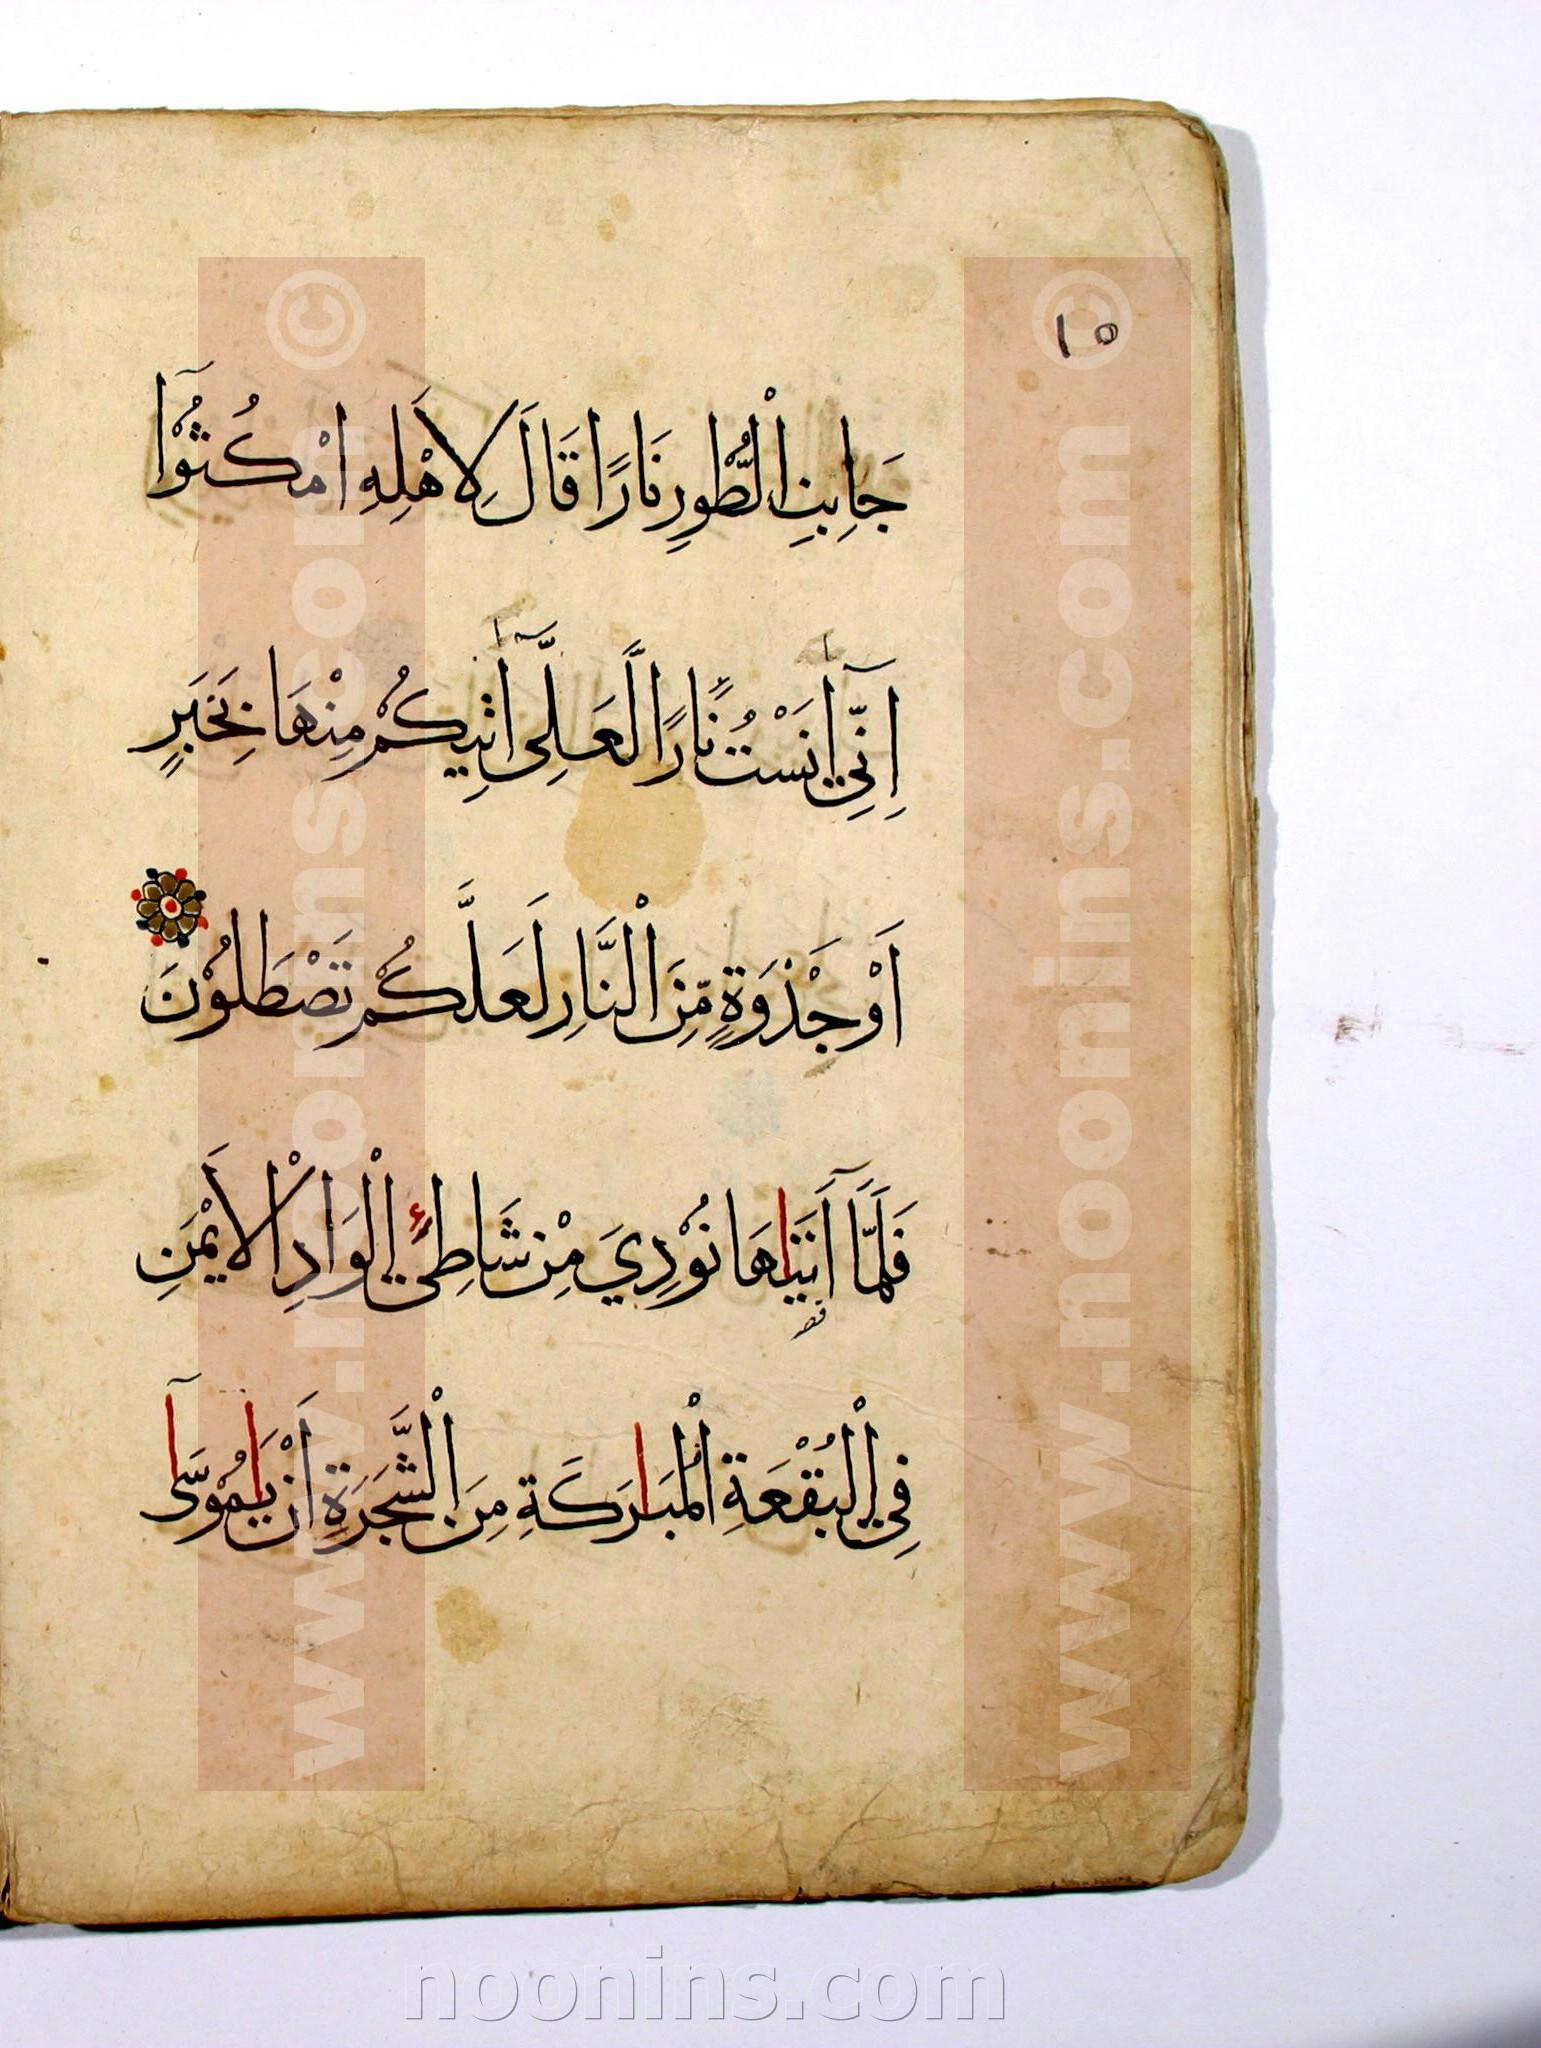 ١٥
جَانِبِ الْطُّورِ نَارًا قَالَ لِاَهْلِهِ امْكُثُوْٓا
اِنِّيٓ اٰنَسْتُ نَّارًا لَّعَلِّىٓ اٰتِيكُمْ مِنْهَا بِخَبَرٍ
اَوْ جَذْوَةٍ مِّنَ الْنَّارِ لَعَلَّكُمْ تَصْطَلُوْنَ
فَلَمَّآ اَتَىٰهَا نُوْدِيَ مِنْ شَاطِئِ الْوَادِ الْاَيْمَنِ
فِي الْبُقْعَةِ الْمُبَارَكَةِ مِنَ الْشَّجَرَةِ اَنْ يَامُوْسَىٰٓ
www.noonins.com ©
www.noonins.com ©
noonins.com